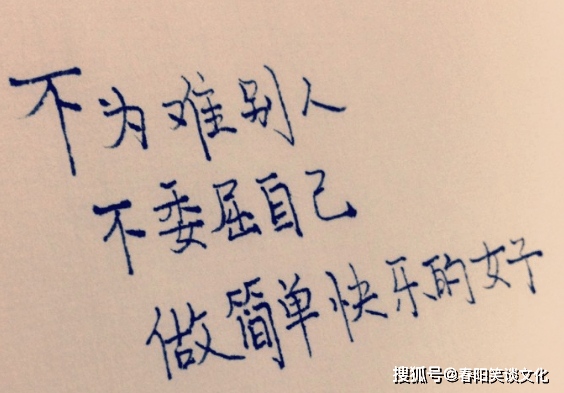 不为难别人
不委屈自己
做简单快乐的女子
搜狐号@春阳笑谈文化